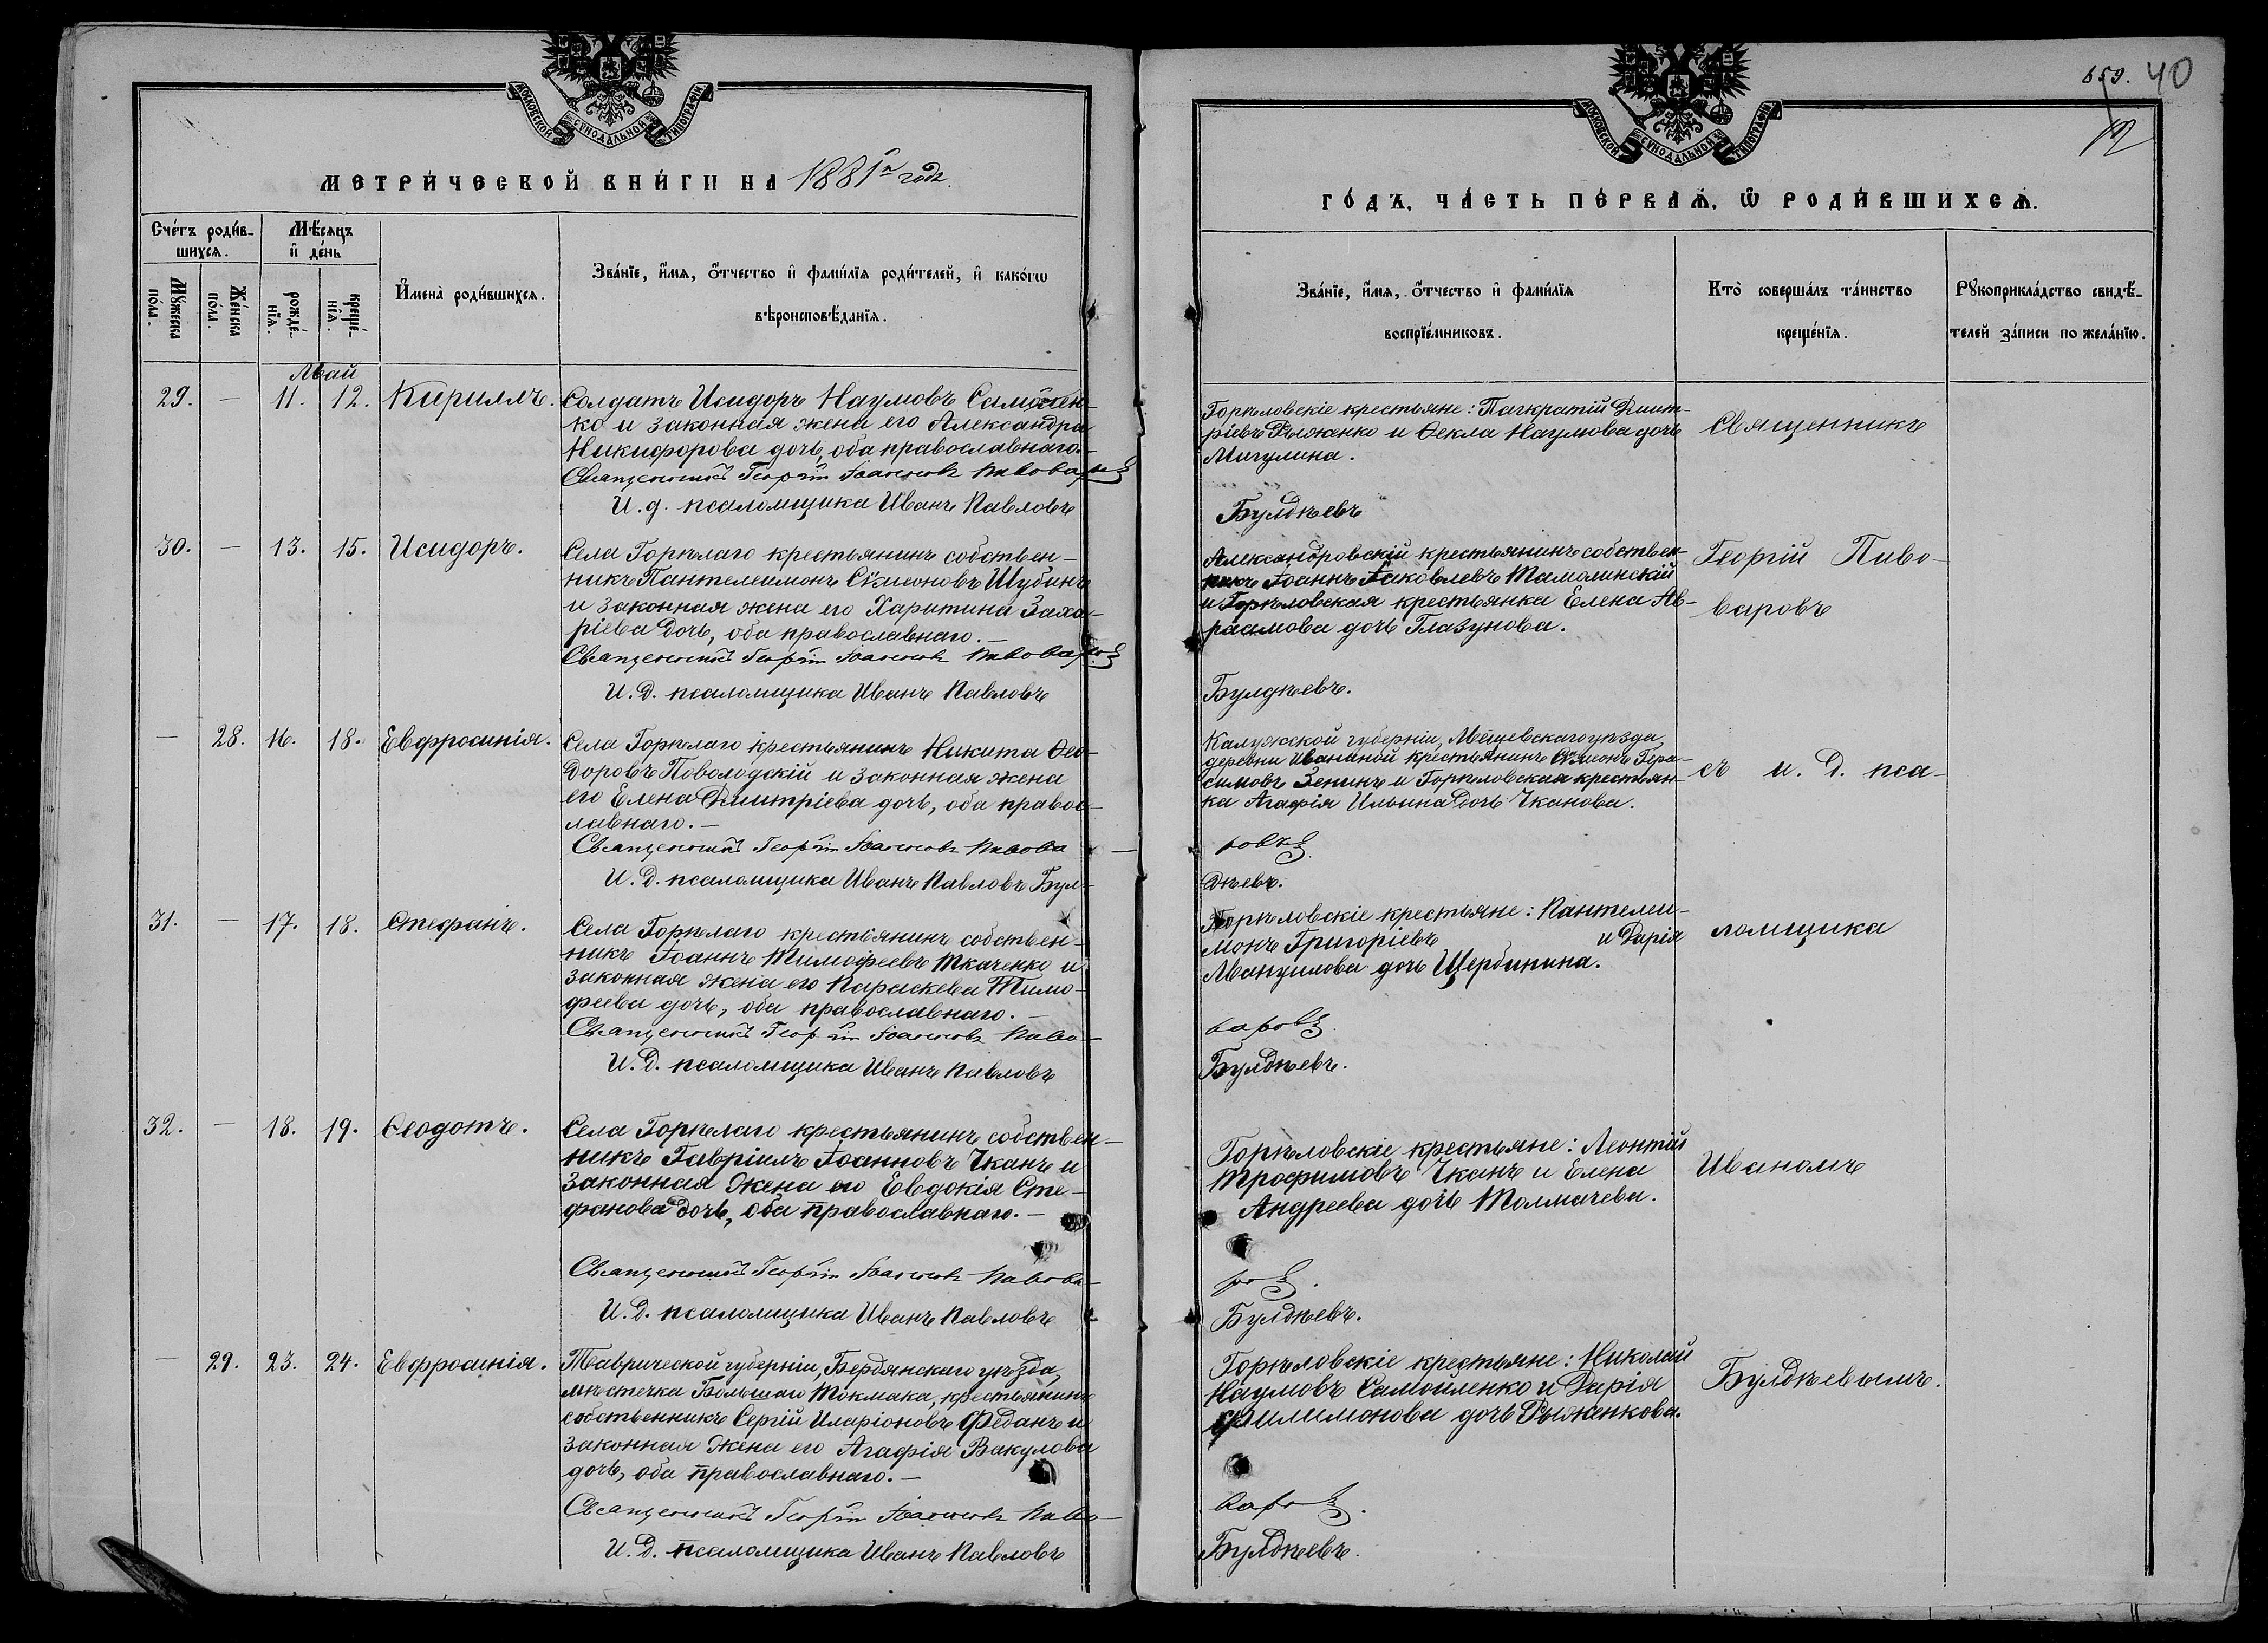 МОСКОВСКОЙ СѴНОДАЛЬНОЙ ТИПОГРАФІИ.
МЕТРИ́ЧЕСКОЙ КНИ́ГИ НА 1881й годъ.
Сче́тъ роди́в-
шихсѧ.
Мѣ́сяцъ
и҆ де́нь
Мꙋ́жеска
по́ла.
Же́нска
по́ла.
рожде́-
нїѧ.
креще́-
нїѧ.
И҆мена̀ роди́вшихсѧ.
Зва́нїе, и҆́мѧ, ѻ҆́тчество и҆ фами́лїѧ роди́телей, и҆ како́гѡ
вѣроисповѣ́данїѧ.
Май
29. — 11. 12. Кириллъ.
Солдатъ Исидоръ Наумовъ Самойлен-
ко и законная жена его Александра
Никифорова дочь, оба православнаго.
Священникъ Георгій Іоанновъ Пивоваровъ
И. д. псаломщика Иванъ Павловъ
30. — 13. 15. Исидоръ.
Села Горѣлаго крестьянинъ собствен-
никъ Пантелеимонъ Сѷмеоновъ Шубинъ
и законная жена его Харитина Заха-
ріева дочь, оба православнаго. —
Священникъ Георгій Іоанновъ Пивоваровъ
И. Д. псаломщика Иванъ Павловъ
— 28. 16. 18. Евфросинія.
Села Горѣлаго крестьянинъ Никита Ѳео-
доровъ Поволодскій и законная жена
его Елена Димитріева дочь, оба правос-
лавнаго. —
Священникъ Георгій Іоанновъ Пивова
И. Д. псаломщика Иванъ Павловъ Бул-
31. — 17. 18. Стефанъ.
Села Горѣлаго крестьянинъ собствен-
никъ Іоаннъ Тимофеевъ Ткаченко и
законная жена его Параскева Тимо-
феева дочь, оба православнаго. —
Священникъ Георгій Іоанновъ Пиво-
И. Д. псаломщика Иванъ Павловъ
32. — 18. 19. Ѳеодотъ.
Села Горѣлаго крестьянинъ собствен-
никъ Гавріилъ Іоанновъ Чканъ и
законная жена его Евдокія Сте-
фанова дочь, оба православнаго. —
Священникъ Георгій Іоанновъ Пивова-
И. Д. псаломщика Иванъ Павловъ
— 29. 23. 24. Евфросинія.
Таврической губерніи, Бердянскаго уѣзда,
мѣстечка Большаго Токмака, крестьянинъ
собственникъ Сергій Иларіоновъ Феданъ и
законная жена его Агафія Вакулова
дочь, оба православнаго. —
Священникъ Георгій Іоанновъ Пиво-
И. Д. псаломщика Иванъ Павловъ
659. 40
МОСКОВСКОЙ СѴНОДАЛЬНОЙ ТИПОГРАФІИ.
ГО́ДЪ, ЧА́СТЬ ПЕ́РВАѦ, Ѡ҆ РОДИ́ВШИХСѦ.
Зва́нїе, и҆́мѧ, ѻ҆́тчество и҆ фами́лїѧ
воспрїе́мниковъ.
Кто̀ соверша́лъ та́инство
креще́нїѧ.
Рꙋкоприкла́дство свидѣ́-
телей за́писи по жела́нїю.
Горѣловскіе крестьяне: Панкратій Димит-
ріевъ Рыженко и Ѳекла Наумова дочь
Мигулина.
Булдѣевъ
Священникъ
Александровскій крестьянинъ собствен-
никъ Іоаннъ Іаковлевъ Тамалинскій
и Горѣловская крестьянка Елена Ав-
раамова дочь Глазунова.
Булдѣевъ.
Георгій Пиво-
варовъ
Калужской губерніи, Мещевскаго уѣзда
деревни Иваниной крестьянинъ Сѷмеонъ Гера-
симовъ Зенинъ и Горѣловская крестьян-
ка Агафія Ильина дочь Чканова.
ровъ.
дѣевъ.
съ и. д. пса-
Горѣловскіе крестьяне: Пантелеи-
монъ Григоріевъ и Дарія
Мануилова дочь Щербинина.
варовъ.
Булдѣевъ.
ломщика
Горѣловскіе крестьяне: Леонтій
Трофимовъ Чканъ и Елена
Андреева дочь Толмачева.
ровъ.
Булдѣевъ.
Иваномъ
Горѣловскіе крестьяне: Николай
Наумовъ Самойленко и Дарія
Филимонова дочь Рыженкова.
варовъ.
Булдѣевъ.
Булдѣевымъ.